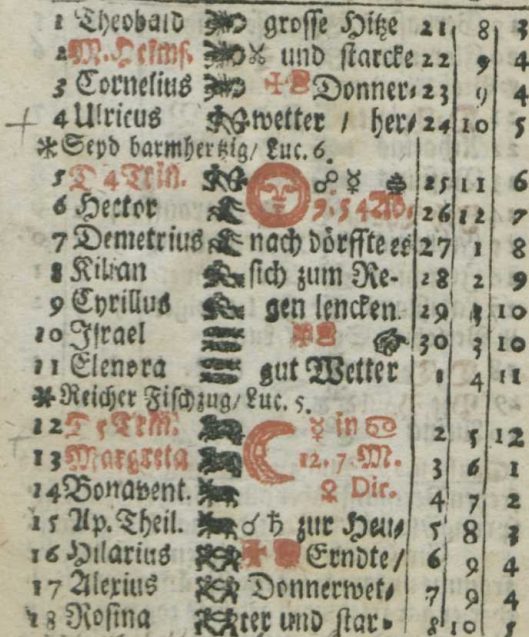 1 Theobald grosse Hitze 21 8 3
2 M. Heims. und starcke 22 9 4
3 Cornelius Donner- 23 9 4
4 Ulricus wetter / her- 24 10 5
* Seyd barmhertzig/ Luc. 6.
5 D 4 Trin. ☍ ☿ 25 11 6
6 Hector 9. 54 26 12 7
7 Demetrius nach dörffte es 27 1 8
8 Kilian sich zum Re- 28 2 9
9 Cyrillus gen lencken. 29 3 10
10 Israel 30 3 10
11 Elenora gut Wetter 1 4 11
* Reicher Fischzug/ Luc. 5.
12 D 5 Trin. ☿ in ♋ 2 5 12
13 Margreta 12. 7. M. 3 6 1
14 Bonavent. ♀ Dir. 4 7 2
15 Ap. Theil. ☌ ♄ zur Heu- 5 8 3
16 Hilarius Erndte / 6 9 4
17 Alexius Donnerwet- 7 9 4
18 Rosina ter und star- 8 10 5